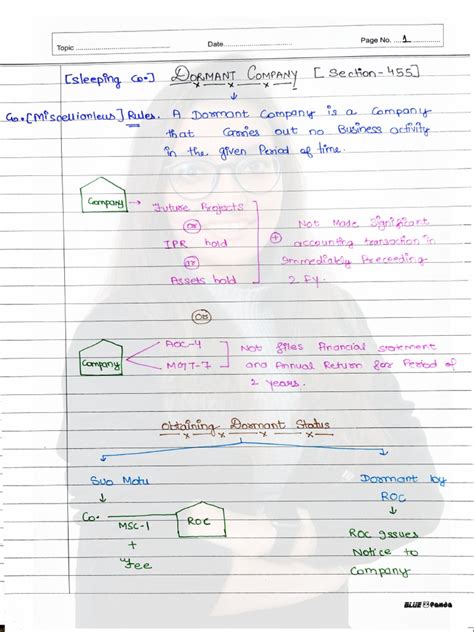 Topic
Date
Page No. 1
[Sleeping Co.] DORMANT COMPANY [Section-455]
Co. [Miscellionleus] Rules. A Dormant Company is a Company
that Carries out no Business activity
in the given Period of time.
Company → Future Projects
OR
IPR hold
or
Assets hold
+
Not Made Significant
accounting transaction in
Immediately Preceeding
2 Fy.
OR
Company
AOC-4
MGT-7
Not files financial statement
and Annual Return for Period of
2 years.
Obtaining Dormant Status
Suo Motu
Co.
MSC-1
+
Fee
ROC
Dormant by
ROC
ROC Issues
Notice to
Company
BLUE Panda